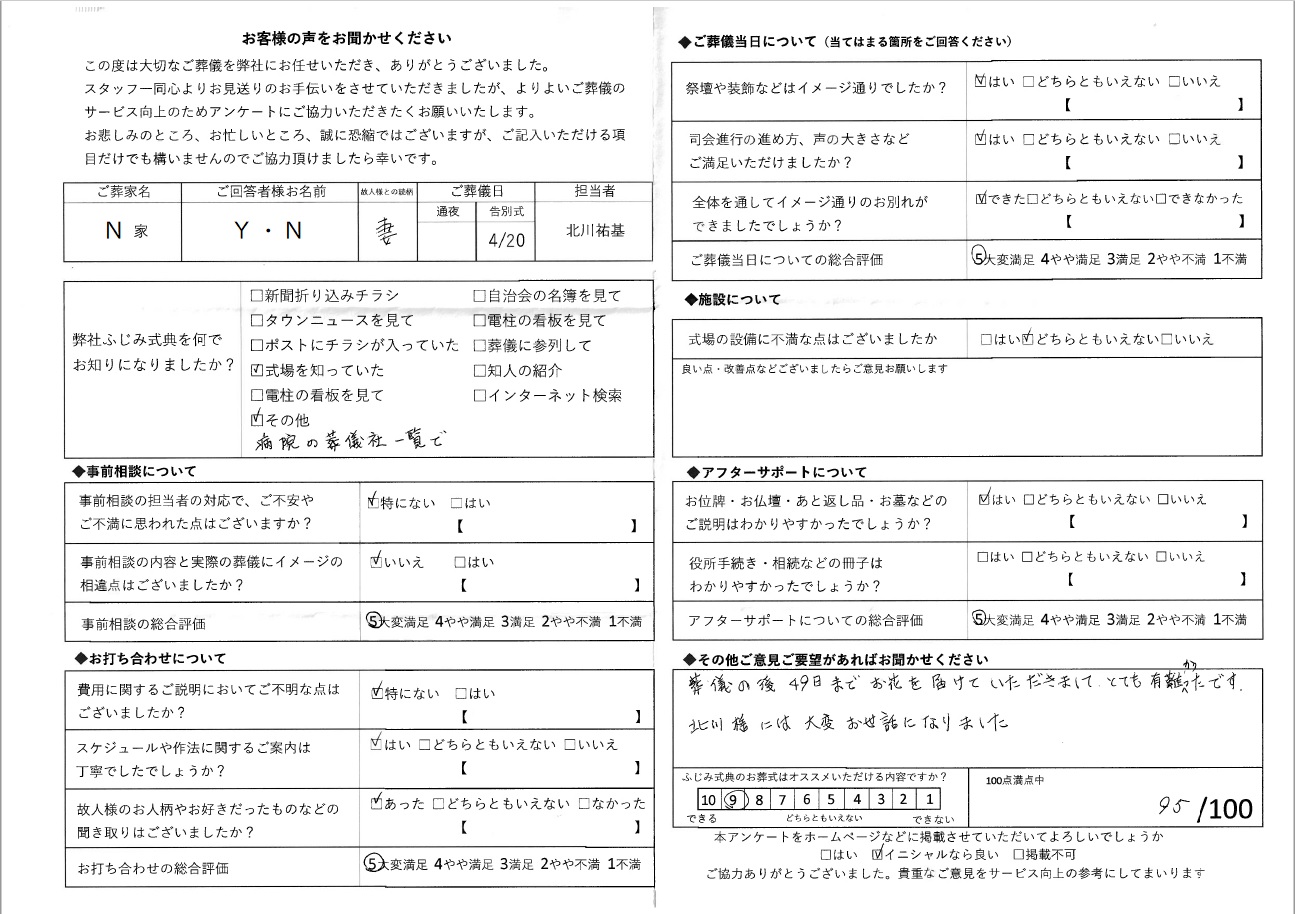 お客様の声をお聞かせください
この度は大切なご葬儀を弊社にお任せいただき、ありがとうございました。
スタッフ一同心よりお見送りのお手伝いをさせていただきましたが、よりよいご葬儀の
サービス向上のためアンケートにご協力いただきたくお願いいたします。
お悲しみのところ、お忙しいところ、誠に恐縮ではございますが、ご記入いただける項
目だけでも構いませんのでご協力頂けましたら幸いです。
ご葬家名 ご回答者様お名前 故人様との続柄 ご葬儀日 担当者
通夜 告別式
N 家 Y・N 妻 4/20 北川祐基
弊社ふじみ式典を何で
お知りになりましたか？
□新聞折り込みチラシ □自治会の名簿を見て
□タウンニュースを見て □電柱の看板を見て
□ポストにチラシが入っていた □葬儀に参列して
☑式場を知っていた □知人の紹介
□電柱の看板を見て □インターネット検索
☑その他
病院の葬儀社一覧で
◆事前相談について
事前相談の担当者の対応で、ご不安や
ご不満に思われた点はございますか？
☑特にない □はい
【 】
事前相談の内容と実際の葬儀にイメージの
相違点はございましたか？
☑いいえ □はい
【 】
事前相談の総合評価 5大変満足 4やや満足 3満足 2やや不満 1不満
◆お打ち合わせについて
費用に関するご説明においてご不明な点は
ございましたか？
☑特にない □はい
【 】
スケジュールや作法に関するご案内は
丁寧でしたでしょうか？
☑はい □どちらともいえない □いいえ
【 】
故人様のお人柄やお好きだったものなどの
聞き取りはございましたか？
☑あった □どちらともいえない □なかった
【 】
お打ち合わせの総合評価 5大変満足 4やや満足 3満足 2やや不満 1不満
◆ご葬儀当日について（当てはまる箇所をご回答ください）
祭壇や装飾などはイメージ通りでしたか？
☑はい □どちらともいえない □いいえ
【 】
司会進行の進め方、声の大きさなど
ご満足いただけましたか？
☑はい □どちらともいえない □いいえ
【 】
全体を通してイメージ通りのお別れが
できましたでしょうか？
☑できた□どちらともいえない□できなかった
【 】
ご葬儀当日についての総合評価 5大変満足 4やや満足 3満足 2やや不満 1不満
◆施設について
式場の設備に不満な点はございましたか □はい☑どちらともいえない□いいえ
良い点・改善点などございましたらご意見お願いします
◆アフターサポートについて
お位牌・お仏壇・あと返し品・お墓などの
ご説明はわかりやすかったでしょうか？
☑はい □どちらともいえない □いいえ
【 】
役所手続き・相続などの冊子は
わかりやすかったでしょうか？
□はい □どちらともいえない □いいえ
【 】
アフターサポートについての総合評価 5大変満足 4やや満足 3満足 2やや不満 1不満
◆その他ご意見ご要望があればお聞かせください
葬儀の後 49日まで お花を届けていただきまして とても有難かったです。
北川様には大変お世話になりました
ふじみ式典のお葬式はオススメいただける内容ですか？
10 9 8 7 6 5 4 3 2 1
できる どちらともいえない できない
100点満点中
95 /100
本アンケートをホームページなどに掲載させていただいてよろしいでしょうか
□はい ☑イニシャルなら良い □掲載不可
ご協力ありがとうございました。貴重なご意見をサービス向上の参考にしてまいります